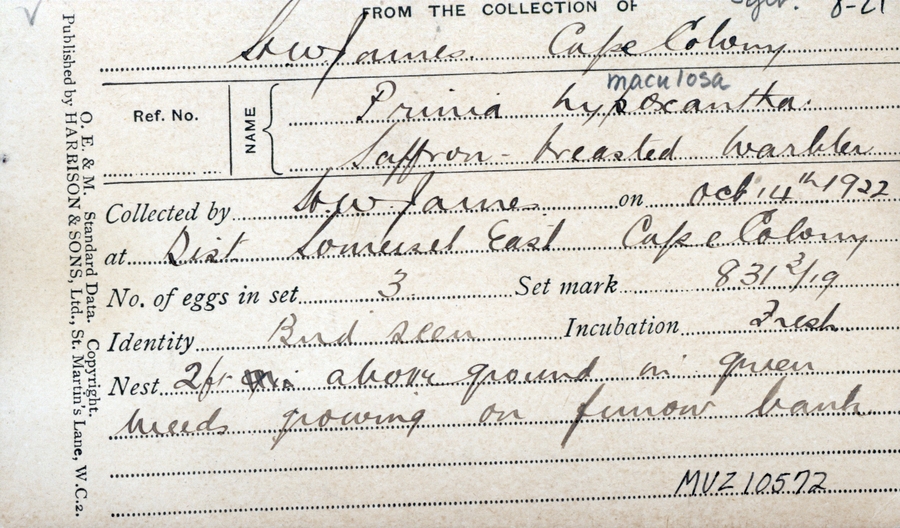 FROM THE COLLECTION OF
8-21
H. W. James. Cape Colony
maculosa
Ref. No.
NAME
Prinia hypoxantha.
Saffron-breasted Warbler
Collected by H. W. James. on Oct 14th 1922
at Dist Somerset East Cape Colony
No. of eggs in set 3 Set mark 831 3/19
Identity Bird seen Incubation Fresh.
Nest 2ft above ground in green
weeds growing on furrow bank.
MUZ 10572
O. E. & M. Standard Data. Copyright.
Published by HARRISON & SONS, Ltd., St. Martin's Lane, W.C.2.